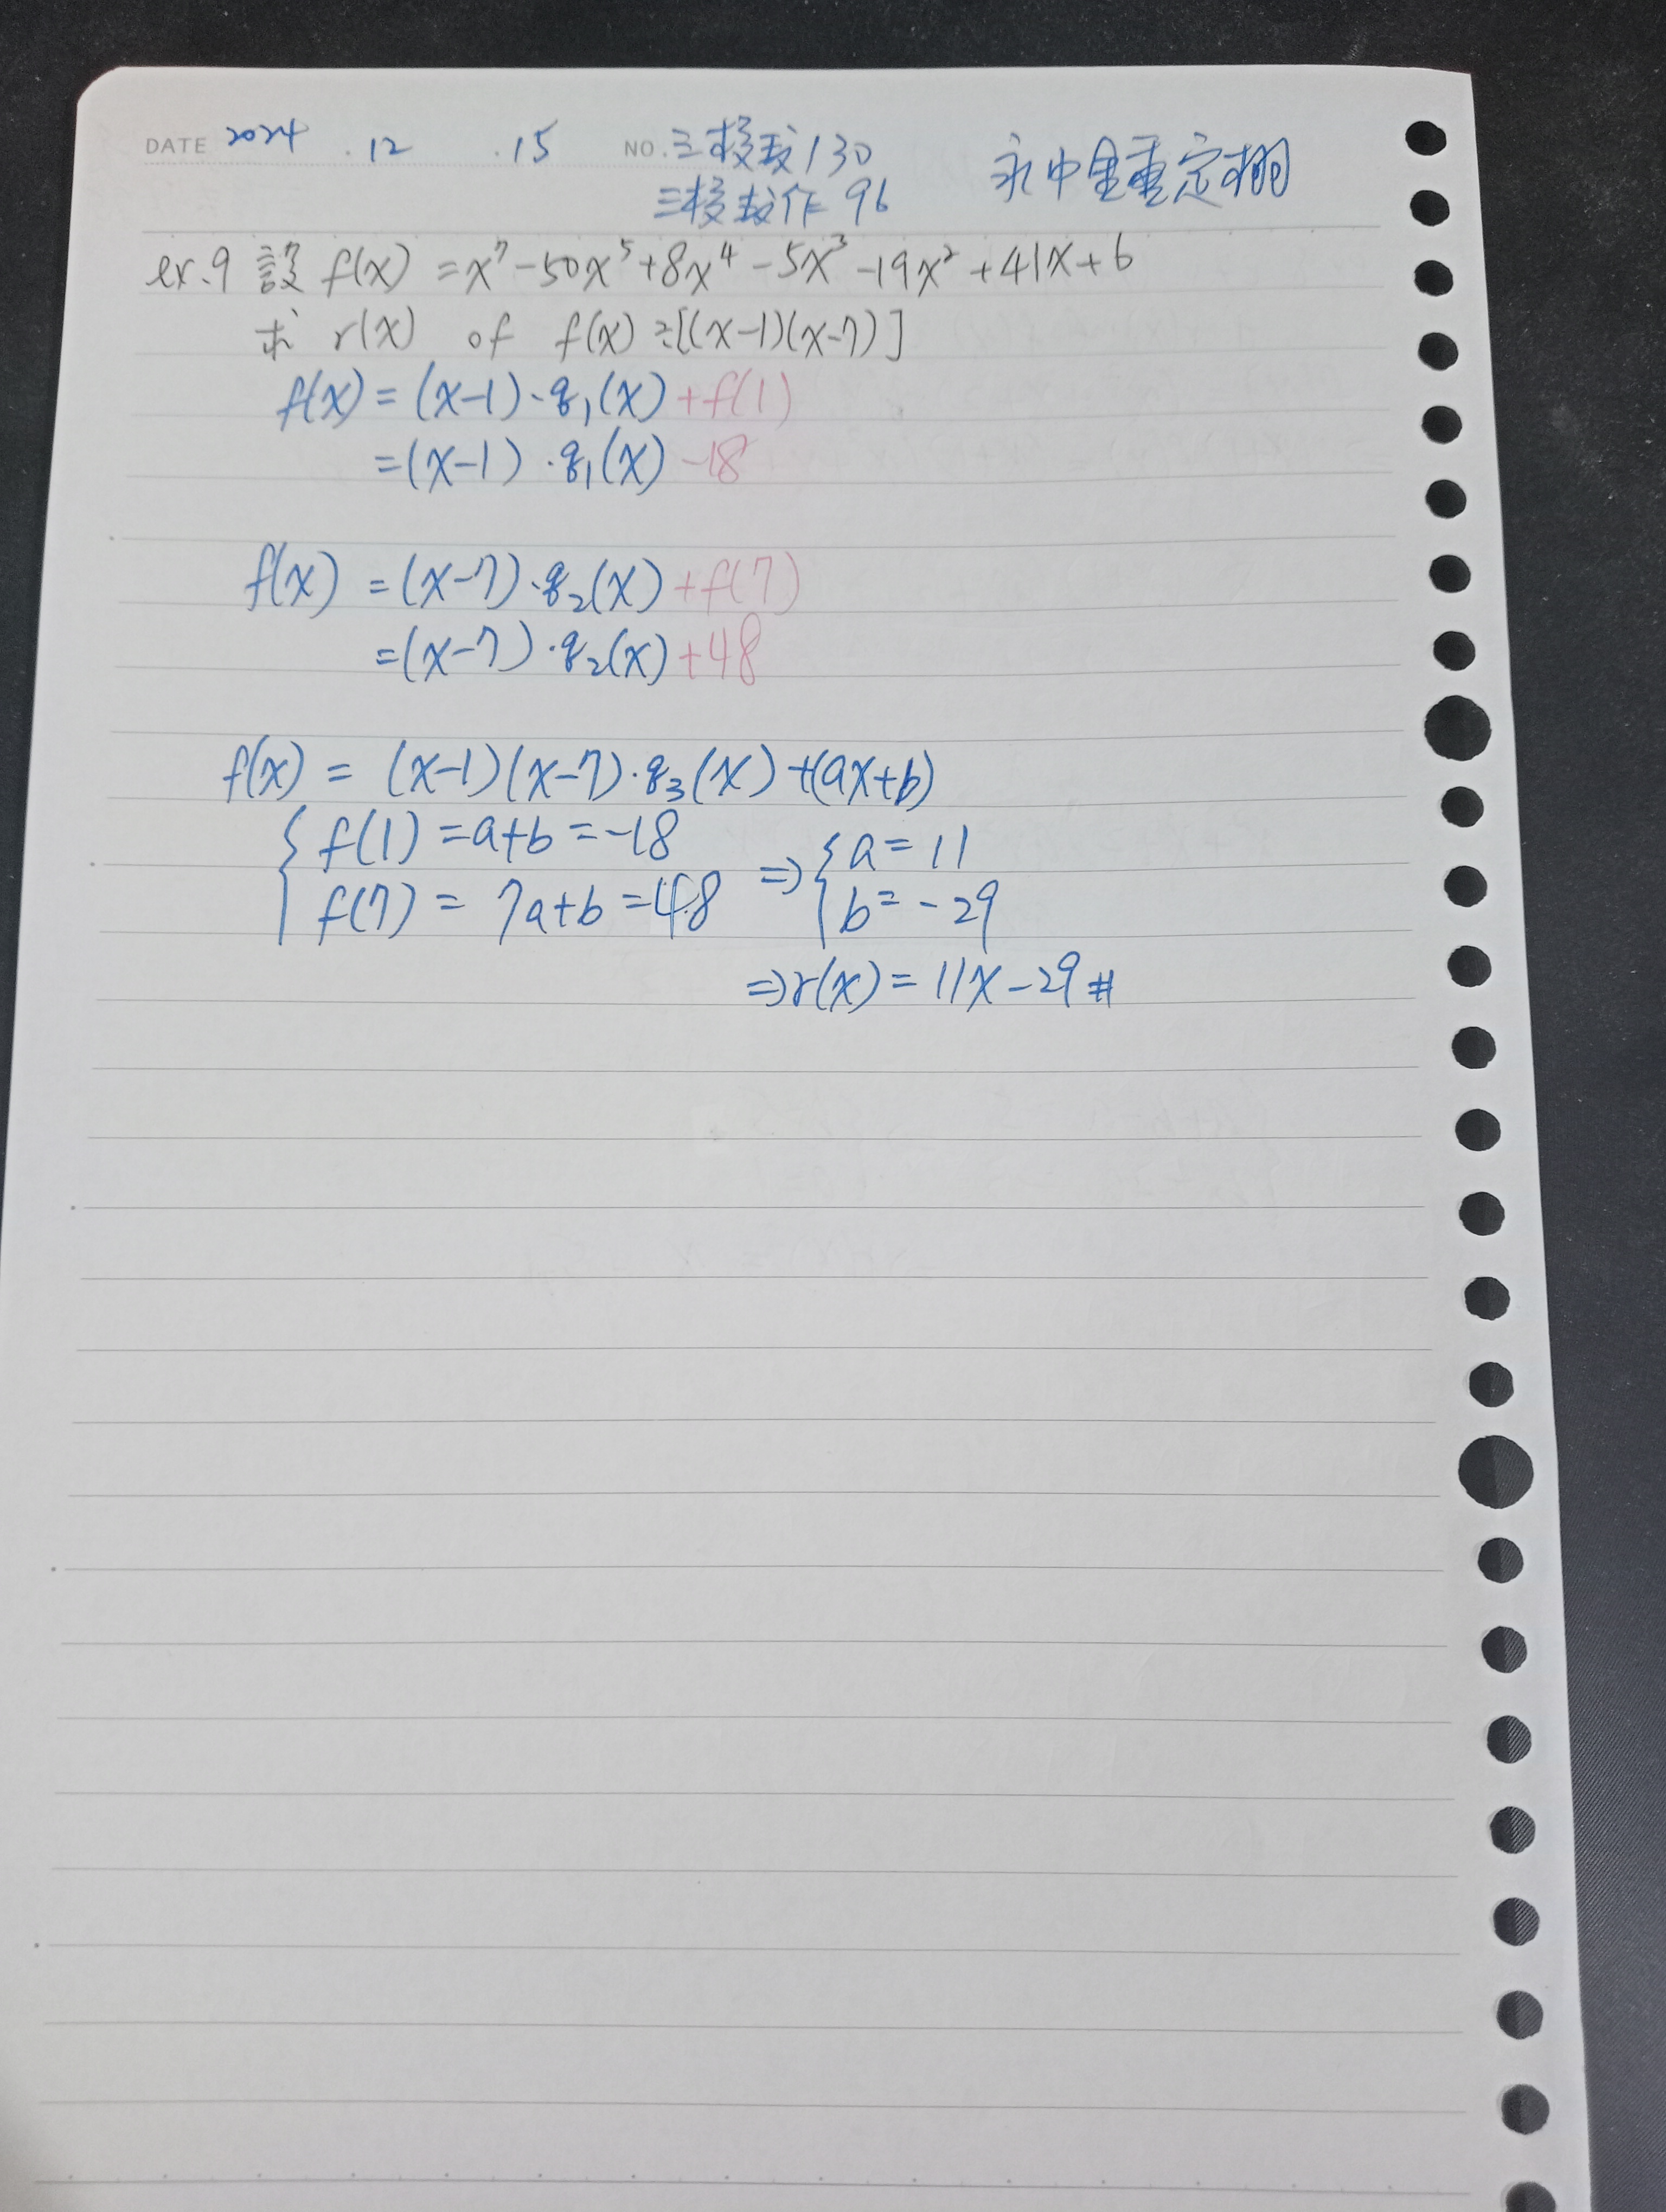 DATE 2024 . 12 . 15 NO. 三校数130
三校数作 96
ex.9 設 f(x) = x⁷-50x⁵+8x⁴-5x³-19x²+41x+6
求 r(x) of f(x)÷[(x-1)(x-7)]
f(x) = (x-1)·q₁(x)+f(1)
=(x-1)·q₁(x)-18
f(x) = (x-7)·q₂(x)+f(7)
=(x-7)·q₂(x)+48
f(x) = (x-1)(x-7)·q₃(x)+(ax+b)
{ f(1) =a+b=-18
{ f(7) = 7a+b=48 => { a=11
{ b=-29
=>r(x) = 11x-29 #